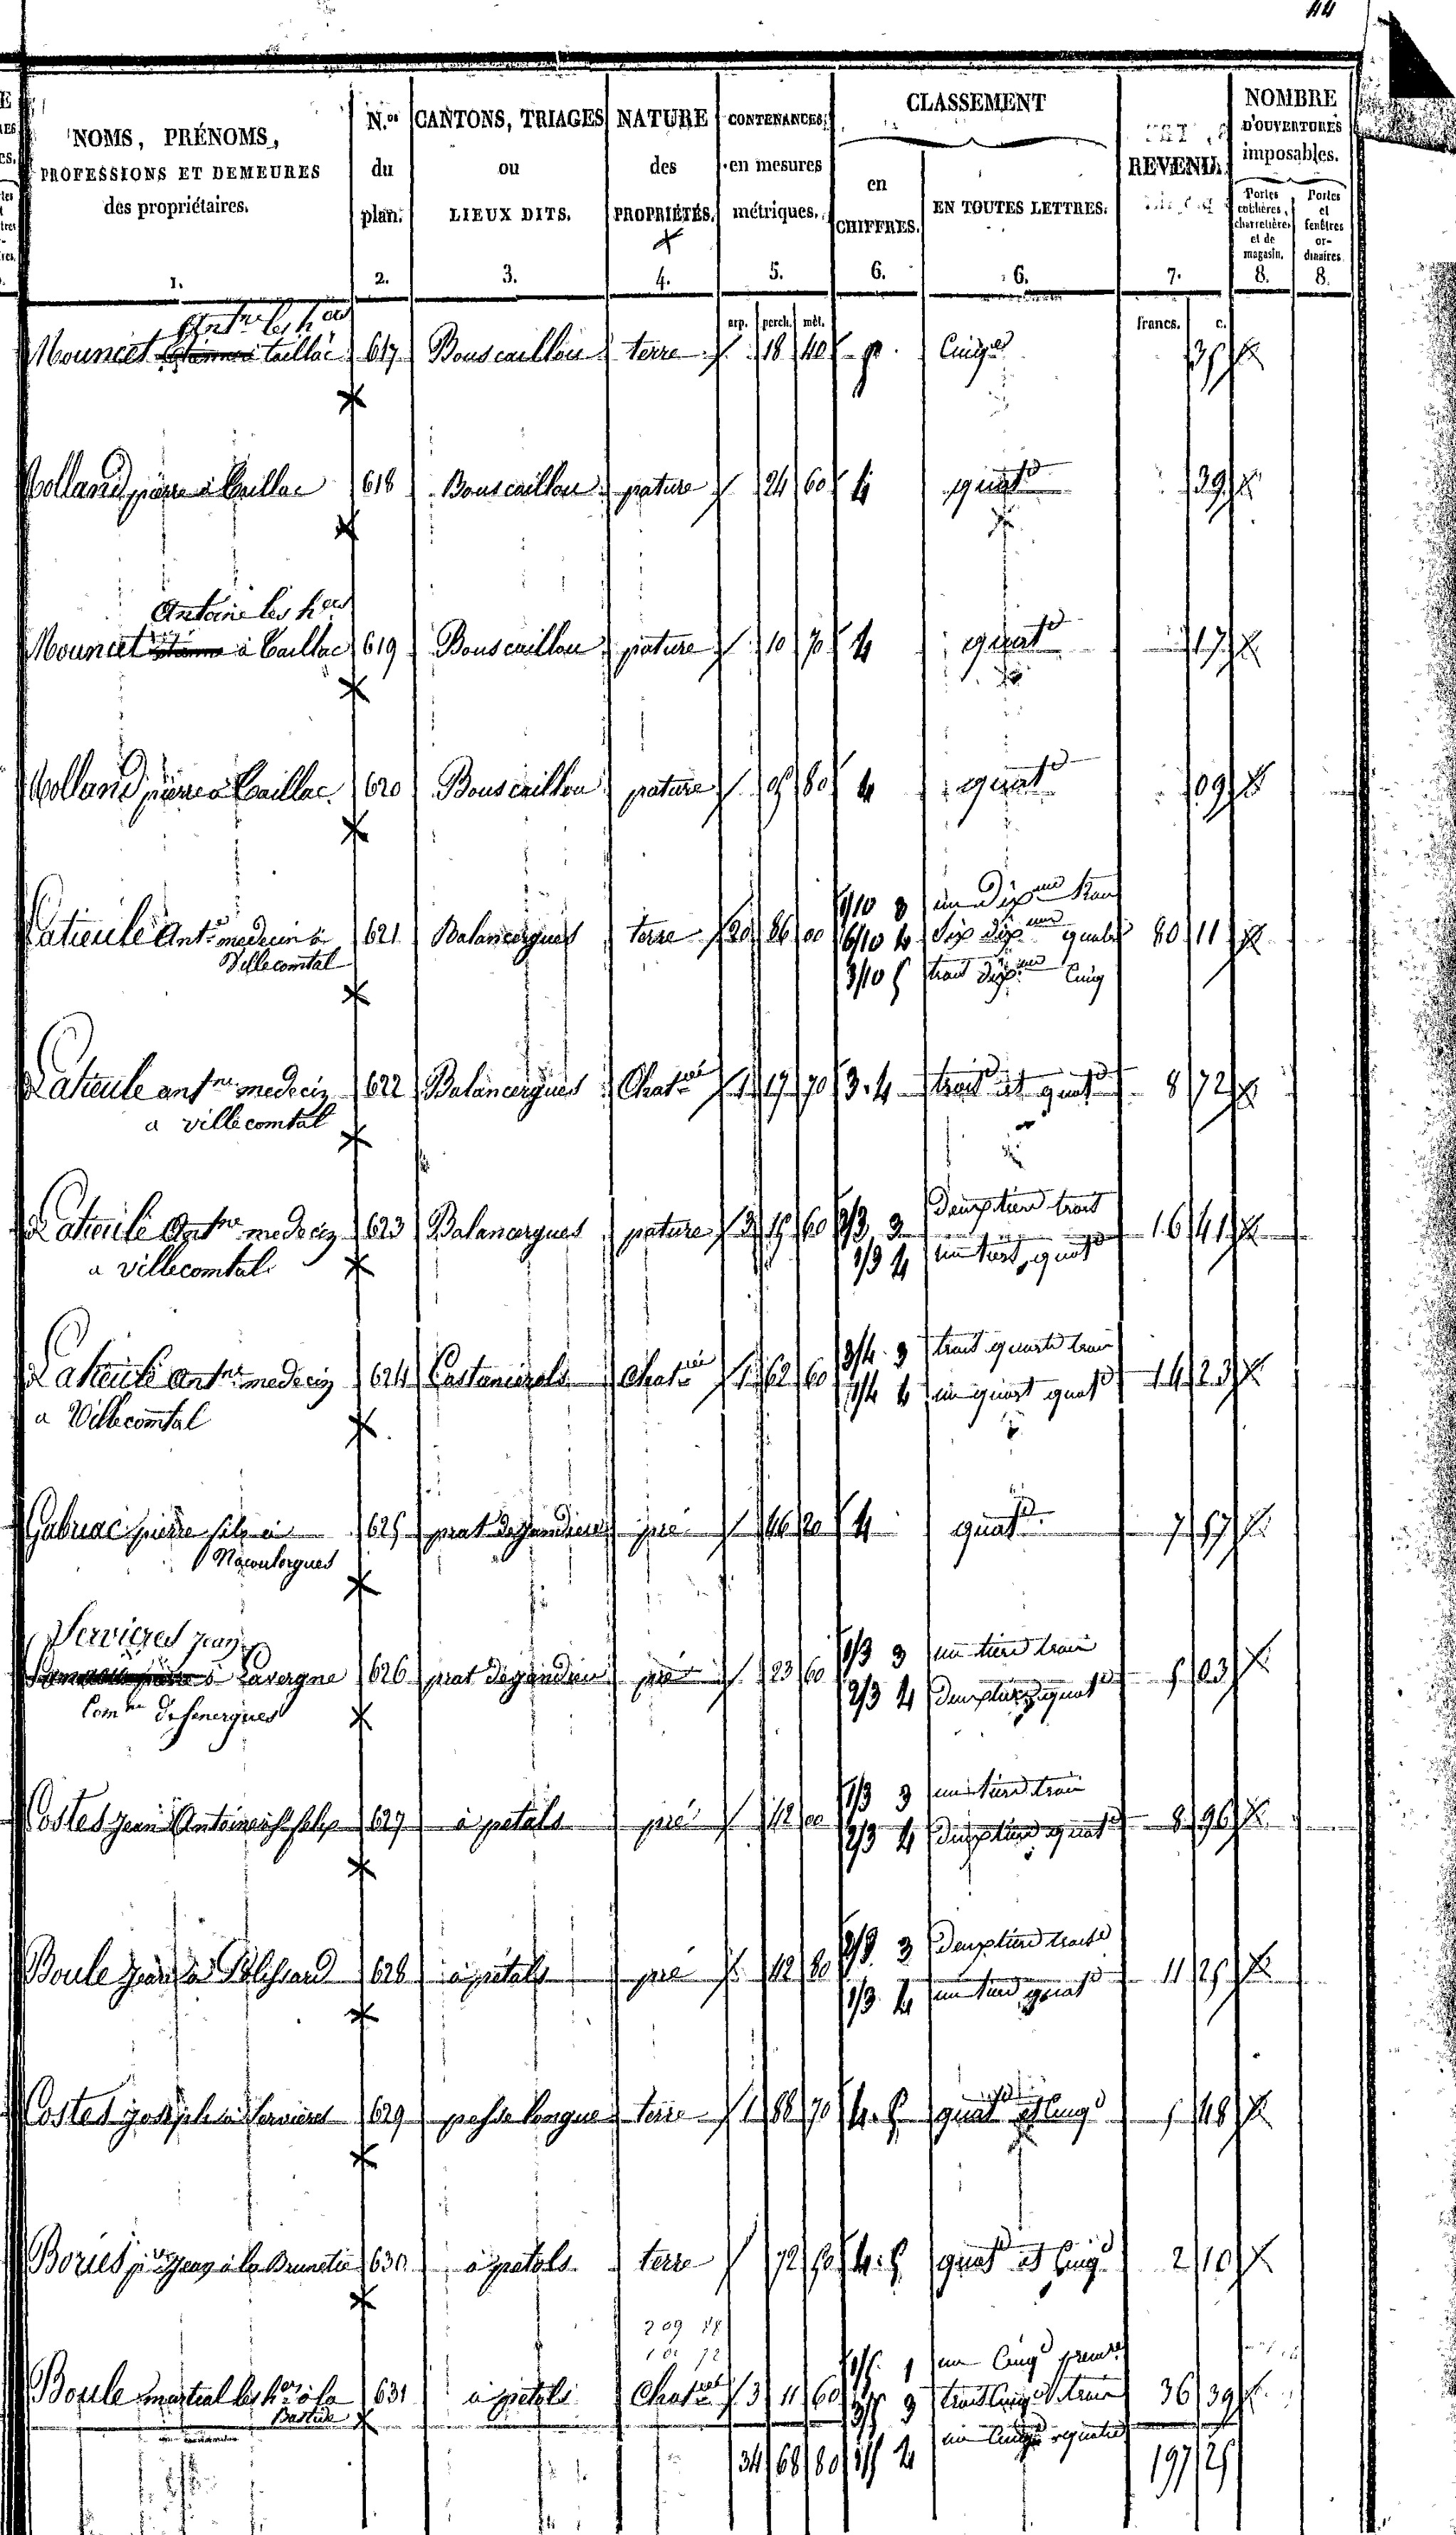 44
NOMS, PRÉNOMS,
PROFESSIONS ET DEMEURES
des propriétaires.
1.
N.os
du
plan.
2.
CANTONS, TRIAGES
ou
LIEUX DITS.
3.
NATURE
des
PROPRIÉTÉS.
4.
CONTENANCES,
en mesures
métriques.
5.
CLASSEMENT
en
CHIFFRES.
6.
EN TOUTES LETTRES.
6.
REVENU.
7.
NOMBRE
D'OUVERTURES
imposables.
Portes
cochères,
charretières
et de
magasin.
8.
Portes
et
fenêtres
or-
dinaires.
8.
arp. perch. mèt. francs. c.
Antne les hers
Mouncet taillac 617 Bouscaillou terre 18 40 5 Cinqe 35
Volland pierre à Caillac 618 Bouscaillou pature 24 60 4 quatre 39
Antoine les hers
Mouncet à Caillac 619 Bouscaillou pature 10 70 4 quatre 17
Volland pierre à Caillac 620 Bouscaillou pature 05 80 4 quatre 09
1/10 3 un dixme trois
Laticule Antne medecin à 621 Balancergues terre 20 86 00 6/10 4 Six dixmes quatre 80 11
Villecomtal 3/10 5 trois dixmes Cinq
Laticule antne medecin 622 Balancergues Chatrée 1 17 70 3.4 trois et quatre 8 72
a villecomtal
Laticule Antne medecin 623 Balancergues pature 3 15 60 2/3 3 Deux tiers trois 16 41
a villecomtal 1/3 4 un tiers quatre
Laticule Antne medecin 624 Castanierols Chatrée 1 62 60 3/4 3 trois quarts trois 14 23
a Villecomtal 1/4 4 un quart quatre
Gabriac pierre fils à 625 prat degandieu pré 46 20 4 quatre 7 57
Nacoulorgues
Servieres jean
à Lavergne 626 prat degandieu pré 23 60 1/3 3 un tiers trois 5 03
Comne de senergues 2/3 4 Deux tiers quatre
Costes jean Antoine 627 à patals pré 42 00 1/3 3 un tiers trois 8 96
2/3 4 deux tiers quatre
Boule jean à 628 à patals pré 42 80 2/3 3 Deux tiers trois 11 25
1/3 4 un tiers quatre
Costes joseph à Servieres 629 pesse longue terre 1 88 70 4.5 quatre et cinq 5 48
Bories jean à la Brunetie 630 à patals terre 72 50 4.5 quatre et Cinq 2 10
1/5 1 un Cinqe premre
Boule martial les hers à la 631 à patals Chatrée 3 11 60 3/5 3 trois Cinqe trois 36 39
Bastide 1/5 4 un Cinqe quatre
34 68 80 197 25